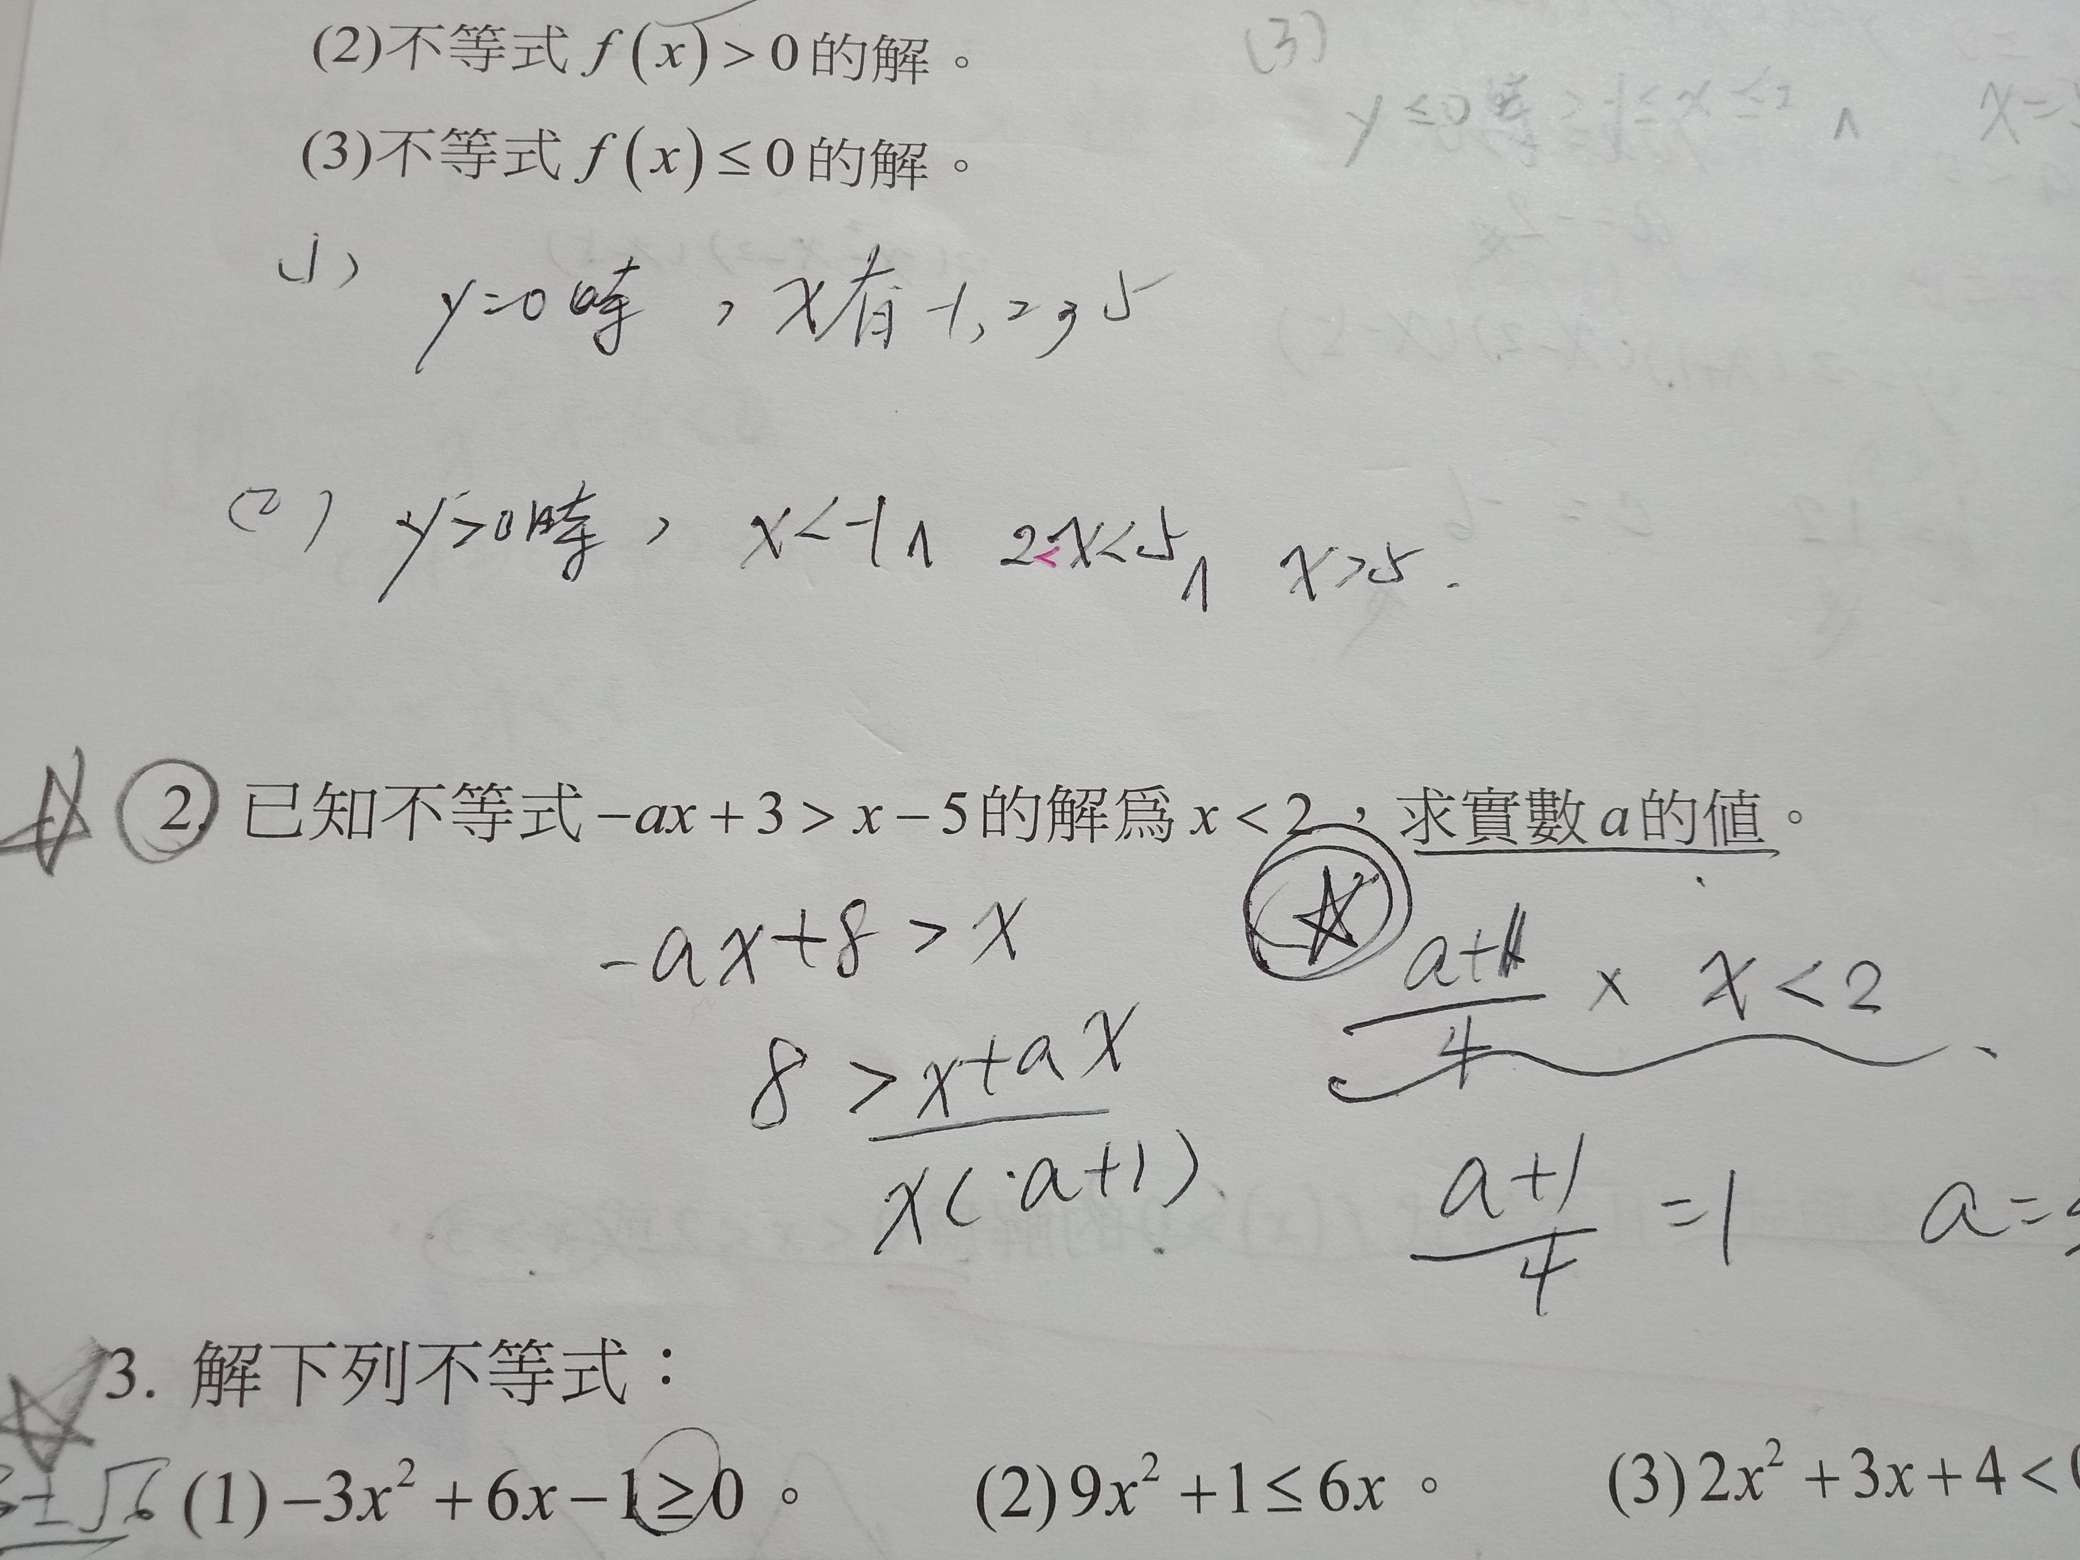 (2)不等式 f(x) > 0 的解。
(3)
y ≤ 0 時 > -1 ≤ x ≤ 2 ∧ x=5
(3)不等式 f(x) ≤ 0 的解。
(1)
y=0時,x有-1,2,5
(2) y>0時, x<-1∧ 2<x<5∧ x>5.
2. 已知不等式 -ax + 3 > x - 5 的解爲 x < 2,求實數 a 的值。
-ax+8 > x
8 > x+ax
x(a+1)
a+1/4 × x < 2
a+1/4 = 1 a=
3. 解下列不等式:
±√6 (1) -3x² + 6x - 1 ≥ 0。 (2) 9x² + 1 ≤ 6x。 (3) 2x² + 3x + 4 < 0